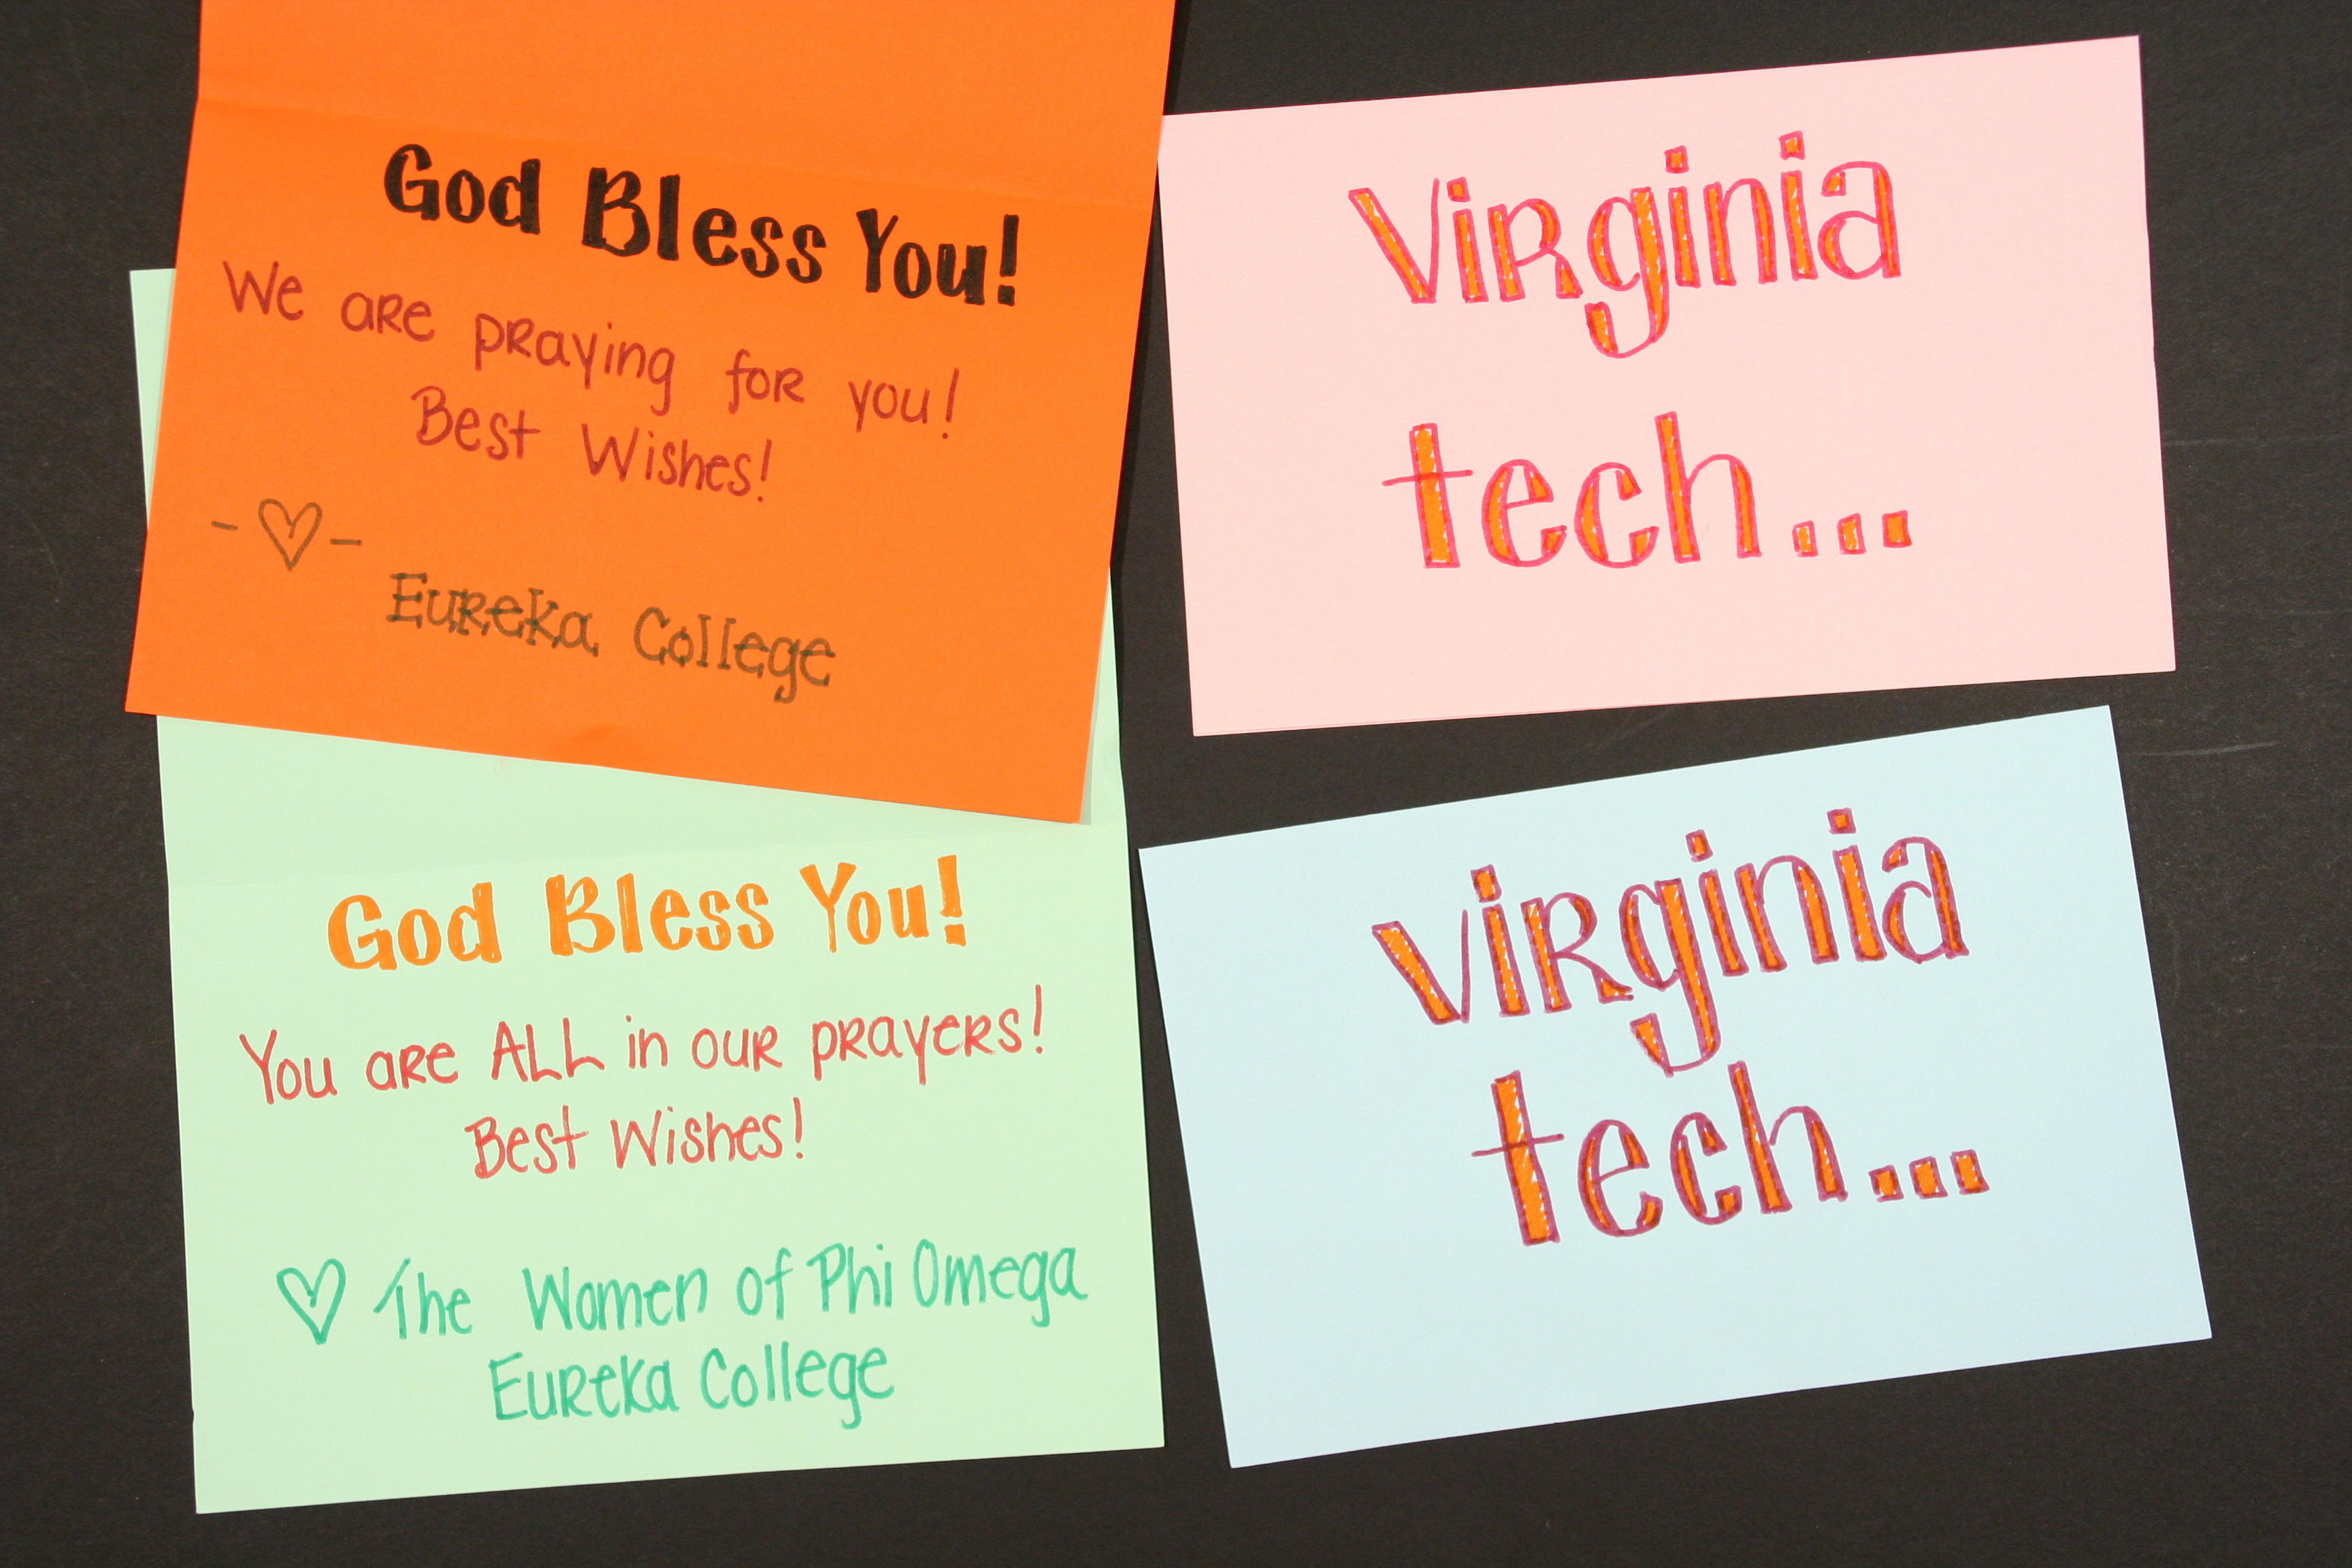 God Bless You!
We are praying for you!
Best Wishes!
-♡-
Eureka College
God Bless You!
You are ALL in our prayers!
Best Wishes!
♡ The Women of Phi Omega
Eureka College
Virginia
tech...
Virginia
tech...